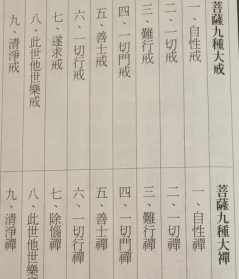 菩薩九種大戒
一、自性戒
二、一切戒
三、難行戒
四、一切門戒
五、善士戒
六、一切行戒
七、遂求戒
八、此世他世樂戒
九、清淨戒
菩薩九種大禪
一、自性禪
二、一切禪
三、難行禪
四、一切門禪
五、善士禪
六、一切行禪
七、除惱禪
八、此世他世樂禪
九、清淨禪